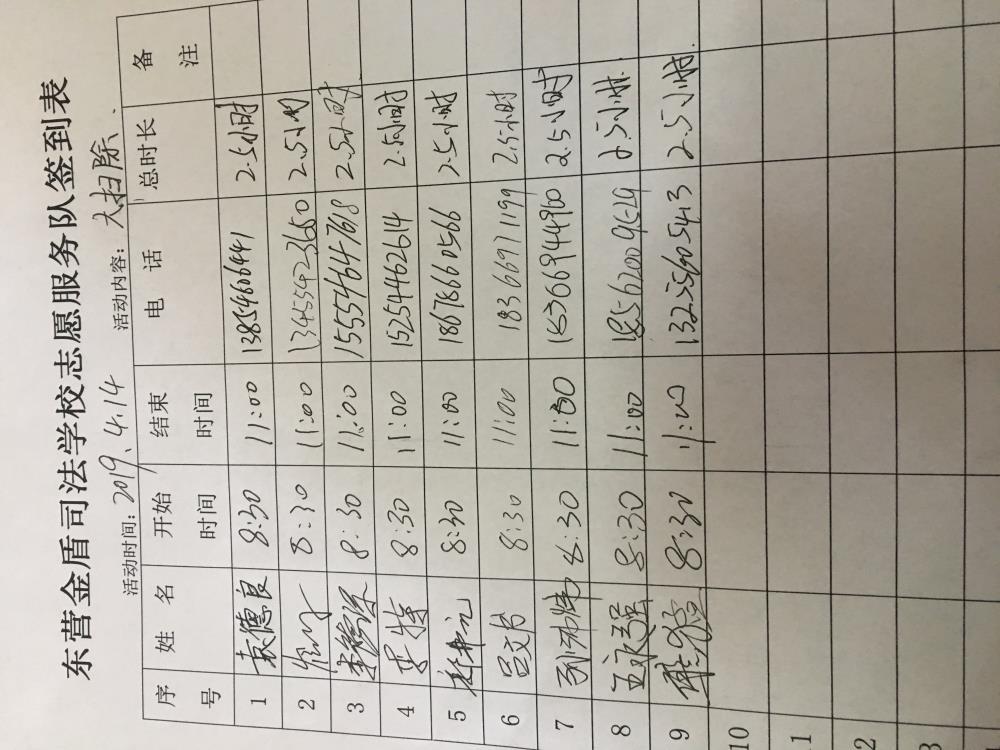 东营金盾司法学校志愿服务队签到表
活动时间: 2019.4.14 活动内容: 大扫除.
序号 姓名 开始时间 结束时间 电话 总时长 备注
1 袁德良 8:30 11:00 13854606441 2.5小时
2 8:30 11:00 13455423650 2.5小时
3 8:30 11:00 15554647618 2.5小时
4 8:30 11:00 15254462614 2.5小时
5 8:30 11:00 18678660566 2.5小时
6 吕文书 8:30 11:00 18366971199 2.5小时
7 8:30 11:00 15366944900 2.5小时
8 王永强 8:30 11:00 2.5小时.
9 8:30 11:00 13225605413 2.5小时
10
11
12
13